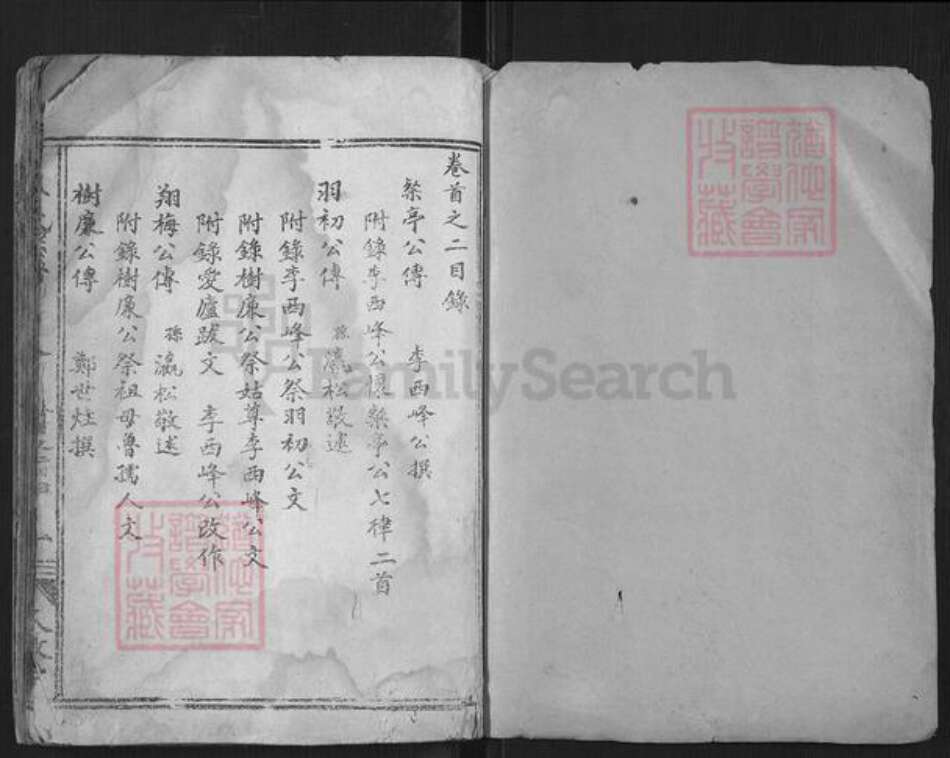 卷首之二目錄
粲亭公傳 李西峰公撰
附錄李西峰公懷粲亭公七律二首
羽初公傳 孫瀛松敬述
附錄李西峰公祭羽初公文
附錄樹廉公祭姑尊李西峰公文
附錄愛廬跋文 李西峰公改作
翔梅公傳 孫瀛松敬述
附錄樹廉公祭祖母魯孺人文
樹廉公傳 鄭世烓撰
FamilySearch